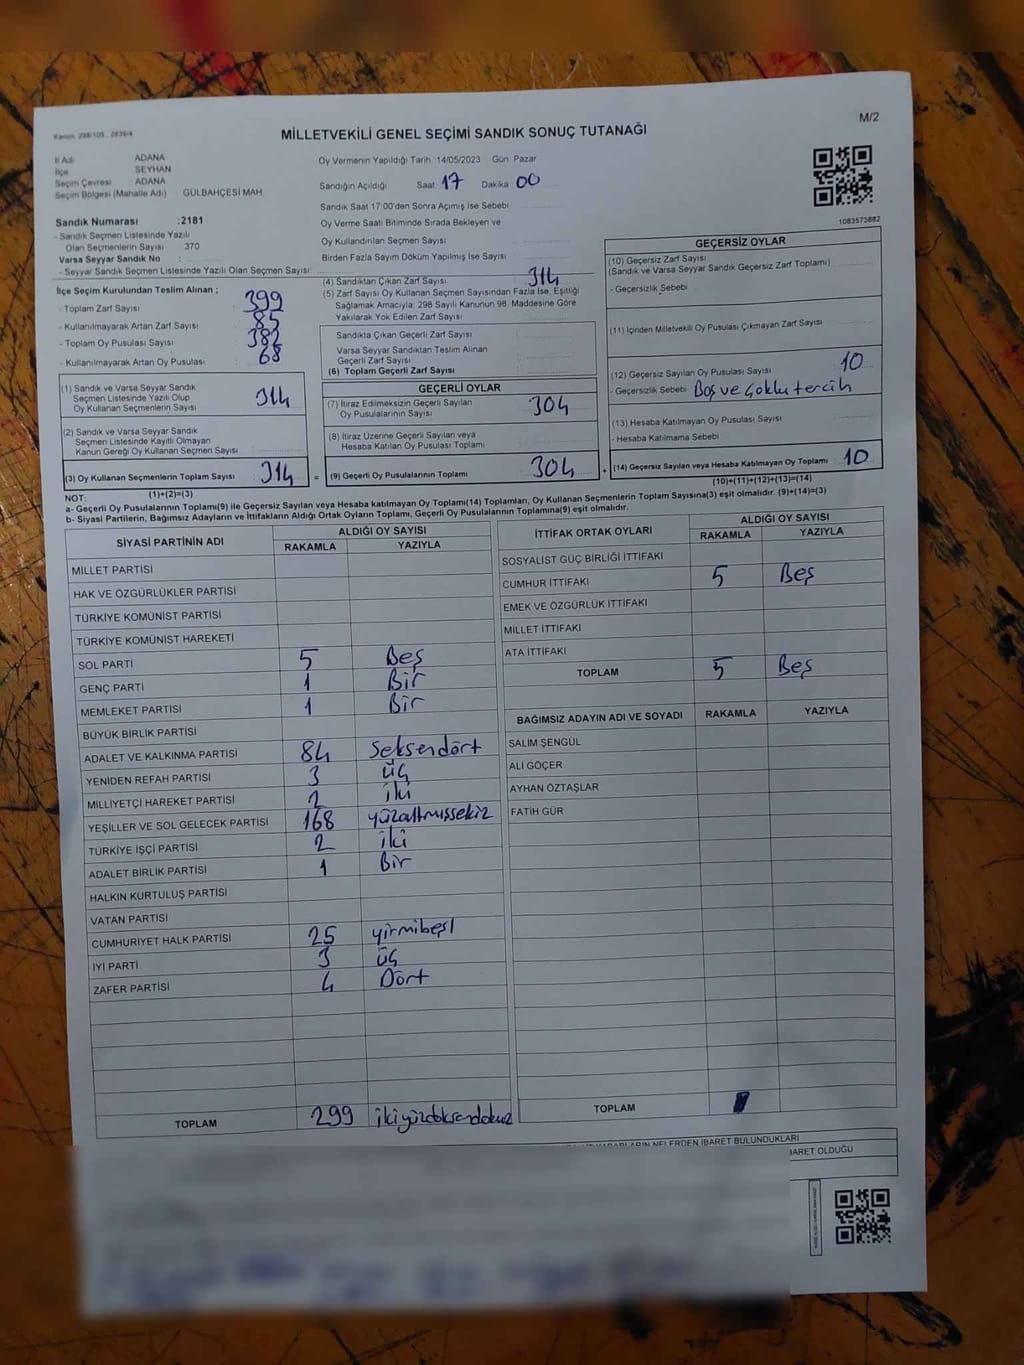 M/2
Kanun. 298/105 . 2839/4
MİLLETVEKİLİ GENEL SEÇİMİ SANDIK SONUÇ TUTANAĞI
İl Adı ADANA
İlçe SEYHAN
Seçim Çevresi ADANA
Seçim Bölgesi (Mahalle Adı) GÜLBAHÇESİ MAH
Oy Vermenin Yapıldığı Tarih :14/05/2023 Gün: Pazar
Sandığın Açıldığı Saat: 17 Dakika 00
Sandık Saat 17:00'den Sonra Açılmış İse Sebebi
Oy Verme Saati Bitiminde Sırada Bekleyen ve
Oy Kullandırılan Seçmen Sayısı
Birden Fazla Sayım Döküm Yapılmış İse Sayısı
1083573882
Sandık Numarası :2181
- Sandık Seçmen Listesinde Yazılı
Olan Seçmenlerin Sayısı 370
Varsa Seyyar Sandık No :
- Seyyar Sandık Seçmen Listesinde Yazılı Olan Seçmen Sayısı:
İlçe Seçim Kurulundan Teslim Alınan ;
- Toplam Zarf Sayısı : 399
- Kullanılmayarak Artan Zarf Sayısı : 85
- Toplam Oy Pusulası Sayısı : 382
- Kullanılmayarak Artan Oy Pusulası : 68
(1) Sandık ve Varsa Seyyar Sandık
Seçmen Listesinde Yazılı Olup
Oy Kullanan Seçmenlerin Sayısı 314
(2) Sandık ve Varsa Seyyar Sandık
Seçmen Listesinde Kayıtlı Olmayan
Kanun Gereği Oy Kullanan Seçmen Sayısı
(3) Oy Kullanan Seçmenlerin Toplam Sayısı 314 =
(1)+(2)=(3)
(4) Sandıktan Çıkan Zarf Sayısı 314
(5) Zarf Sayısı Oy Kullanan Seçmen Sayısından Fazla İse, Eşitliği
Sağlamak Amacıyla; 298 Sayılı Kanunun 98. Maddesine Göre
Yakılarak Yok Edilen Zarf Sayısı
Sandıkta Çıkan Geçerli Zarf Sayısı
Varsa Seyyar Sandıktan Teslim Alınan
Geçerli Zarf Sayısı
(6) Toplam Geçerli Zarf Sayısı
GEÇERLİ OYLAR
(7) İtiraz Edilmeksizin Geçerli Sayılan
Oy Pusulalarının Sayısı 304
(8) İtiraz Üzerine Geçerli Sayılan veya
Hesaba Katılan Oy Pusulası Toplamı
(9) Geçerli Oy Pusulalarının Toplamı 304 +
GEÇERSİZ OYLAR
(10) Geçersiz Zarf Sayısı
(Sandık ve Varsa Seyyar Sandık Geçersiz Zarf Toplamı)
- Geçersizlik Sebebi :
(11) İçinden Milletvekili Oy Pusulası Çıkmayan Zarf Sayısı
(12) Geçersiz Sayılan Oy Pusulası Sayısı 10
- Geçersizlik Sebebi : Boş ve çoklu tercih
(13) Hesaba Katılmayan Oy Pusulası Sayısı
- Hesaba Katılmama Sebebi
(14) Geçersiz Sayılan veya Hesaba Katılmayan Oy Toplamı 10
(10)+(11)+(12)+(13)=(14)
NOT:
a- Geçerli Oy Pusulalarının Toplamı(9) ile Geçersiz Sayılan veya Hesaba katılmayan Oy Toplamı(14) Toplamları, Oy Kullanan Seçmenlerin Toplam Sayısına(3) eşit olmalıdır. (9)+(14)=(3)
b- Siyasi Partilerin, Bağımsız Adayların ve İttifakların Aldığı Ortak Oyların Toplamı, Geçerli Oy Pusulalarının Toplamına(9) eşit olmalıdır.
SİYASİ PARTİNİN ADI ALDIĞI OY SAYISI
RAKAMLA YAZIYLA
MİLLET PARTİSİ
HAK VE ÖZGÜRLÜKLER PARTİSİ
TÜRKİYE KOMÜNİST PARTİSİ
TÜRKİYE KOMÜNİST HAREKETİ
SOL PARTİ 5 Beş
GENÇ PARTİ 1 Bir
MEMLEKET PARTİSİ 1 Bir
BÜYÜK BİRLİK PARTİSİ
ADALET VE KALKINMA PARTİSİ 84 Seksendört
YENİDEN REFAH PARTİSİ 3 üç
MİLLİYETÇİ HAREKET PARTİSİ 2 iki
YEŞİLLER VE SOL GELECEK PARTİSİ 168 yüzaltmıssekiz
TÜRKİYE İŞÇİ PARTİSİ 2 iki
ADALET BİRLİK PARTİSİ 1 Bir
HALKIN KURTULUŞ PARTİSİ
VATAN PARTİSİ
CUMHURİYET HALK PARTİSİ 25 yirmibeş
İYİ PARTİ 3 üç
ZAFER PARTİSİ 4 Dört
TOPLAM 299 ikiyüzdoksandokuz
İTTİFAK ORTAK OYLARI ALDIĞI OY SAYISI
RAKAMLA YAZIYLA
SOSYALİST GÜÇ BİRLİĞİ İTTİFAKI
CUMHUR İTTİFAKI 5 Beş
EMEK VE ÖZGÜRLÜK İTTİFAKI
MİLLET İTTİFAKI
ATA İTTİFAKI
TOPLAM 5 Beş
BAĞIMSIZ ADAYIN ADI VE SOYADI RAKAMLA YAZIYLA
SALİM ŞENGÜL
ALİ GÖÇER
AYHAN ÖZTAŞLAR
FATİH GÜR
TOPLAM
KARARLARIN NELERDEN İBARET BULUNDUKLARI
İBARET OLDUĞU